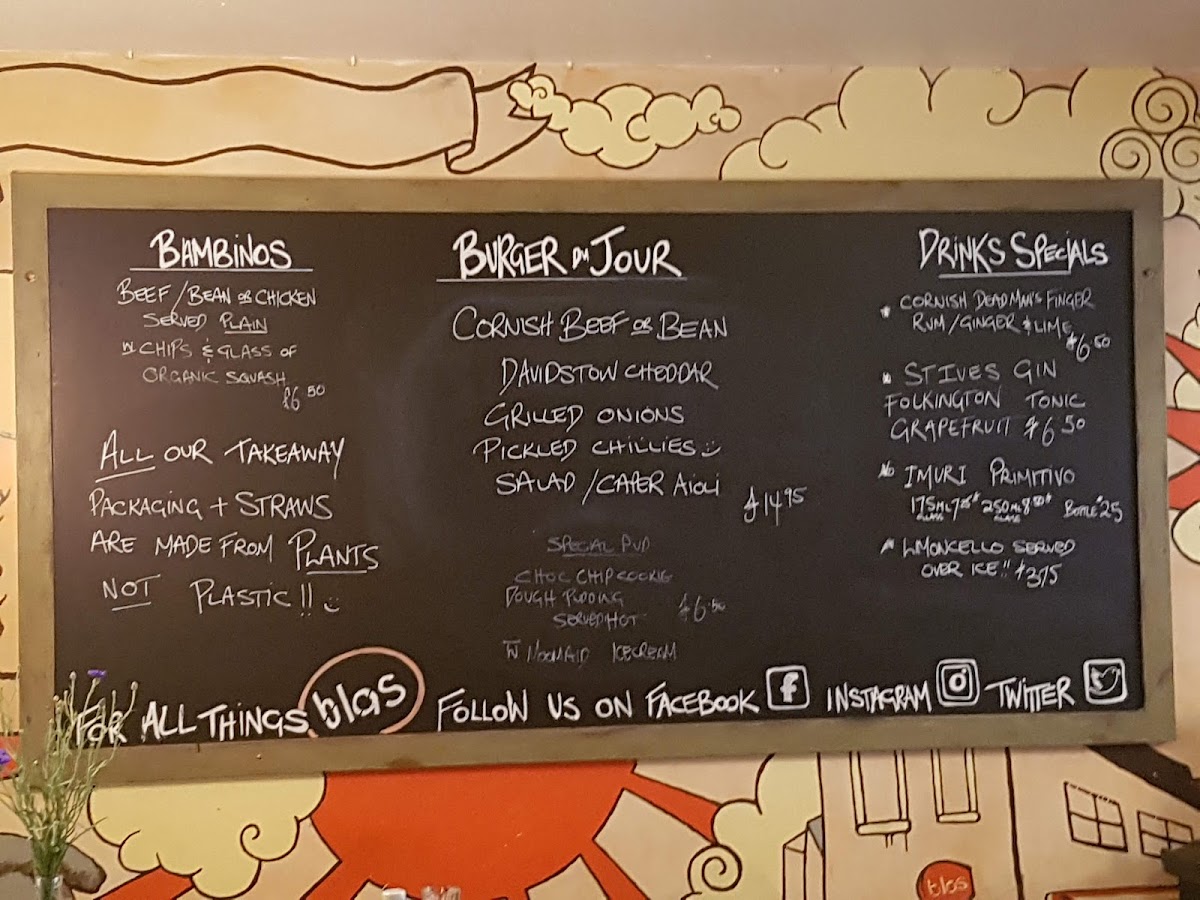 BAMBINOS
BEEF/BEAN OR CHICKEN
SERVED PLAIN
W CHIPS & GLASS OF
ORGANIC SQUASH
£6.50
ALL OUR TAKEAWAY
PACKAGING + STRAWS
ARE MADE FROM PLANTS
NOT PLASTIC!!
BURGER DU JOUR
CORNISH BEEF OR BEAN
DAVIDSTOW CHEDDAR
GRILLED ONIONS
PICKLED CHILLIES
SALAD/CAPER AIOLI
£14.95
SPECIAL PUD
CHOC CHIP COOKIE
DOUGH PUDDING
£6.50
SERVED HOT
W MOOMAID ICECREAM
DRINKS SPECIALS
CORNISH DEAD MAN'S FINGER
RUM/GINGER & LIME
£6.50
ST IVES GIN
FOLKINGTON TONIC
GRAPEFRUIT £6.50
IMURI PRIMITIVO
175ML GLASS 250ML GLASS BOTTLE £25
LIMONCELLO SERVED
OVER ICE!! £3.75
FOR ALL THINGS blas FOLLOW US ON FACEBOOK f INSTAGRAM TWITTER
blas